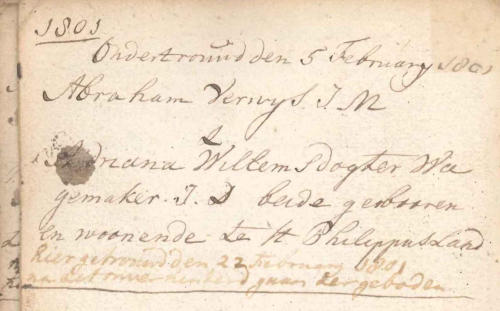 1801
Ondertrouwd den 5 February 1801
Abraham Verwys J. M
&
Adriana Willemsdogter Wa
gemaker. J. D beide gebooren
En woonende te St Philippus Land
hier getrouwd den 22 February 1801
na
gaan der geboden